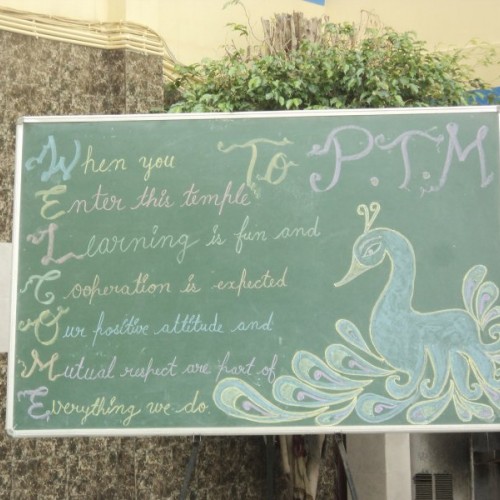 When you
To P.T.M
Enter this temple
Learning is fun and
Cooperation is expected
Our positive attitude and
Mutual respect are part of
Everything we do.